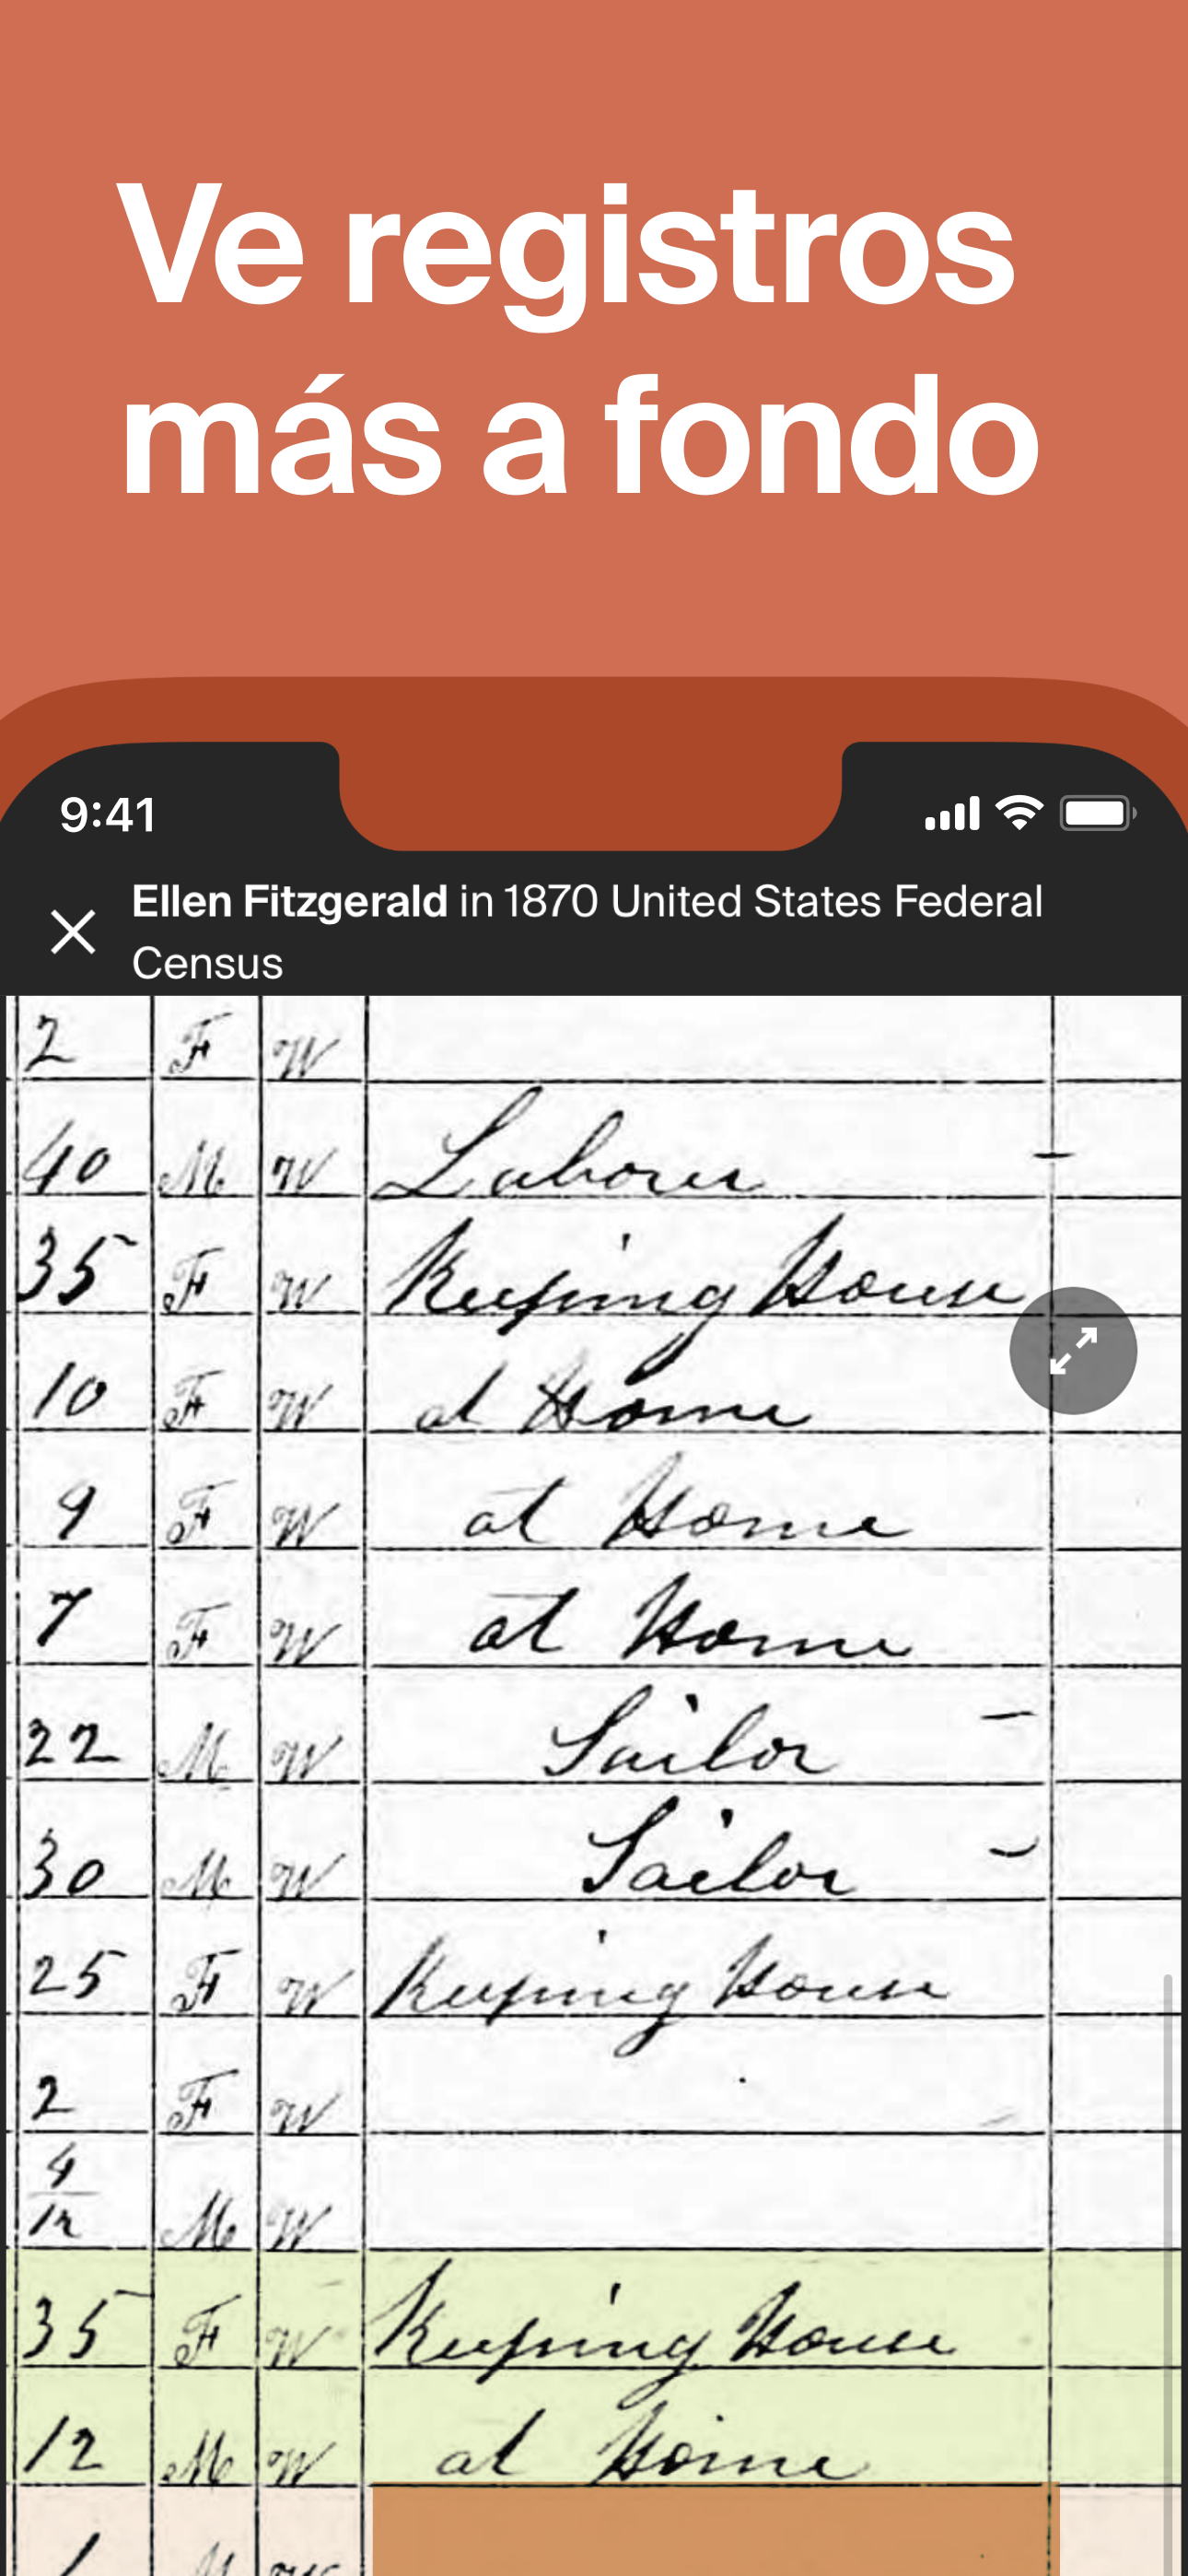 Ve registros
más a fondo
9:41
Ellen Fitzgerald in 1870 United States Federal
Census
2 F W
40 M W Laborer
35 F W Keeping House
10 F W at Home
9 F W at Home
7 F W at Home
22 M W Sailor
30 M W Sailor
25 F W Keeping House
2 F W
4/12 M W
35 F W Keeping House
12 M W at Home